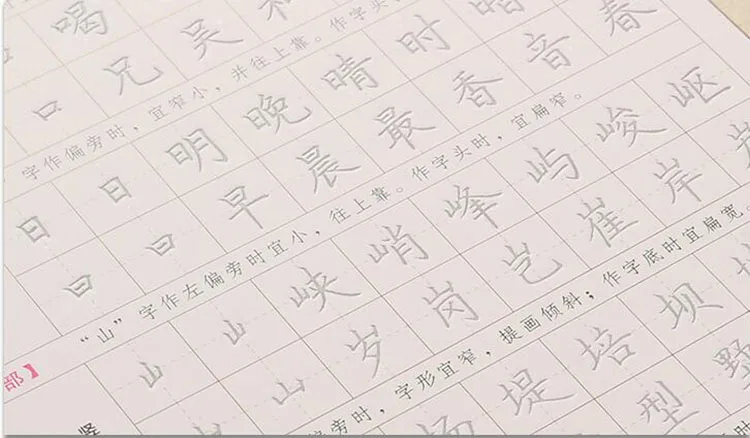 喝
口 兄 吴 和
字作偏旁时，宜窄小，并往上靠。作字头
日 日 明 晚 晴 时 暗
曰 早 晨 最 香 音 春
“山”字作左偏旁时宜小，往上靠。作字头时，宜扁窄。
山 山 峡 峭 峰 屿 峻 岖
山 岁 岗 岂 崔 岸
部】
偏旁时，字形宜窄，提画倾斜；作字底时宜扁宽
竖
场 堤 培 坝
型 野